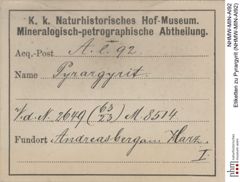 K. k. Naturhistorisches Hof-Museum.
Mineralogisch-petrographische Abtheilung.
Acq.-Post A. l. 92
Name Pyrargyrit.
V. d. N. 2649 (63/23) M. 8514
Fundort Andreasberg am Harz
I
NHMW-MIN-A/92
Etiketten zu Pyrargyrit (NHMW-MIN-A/92)
nhm